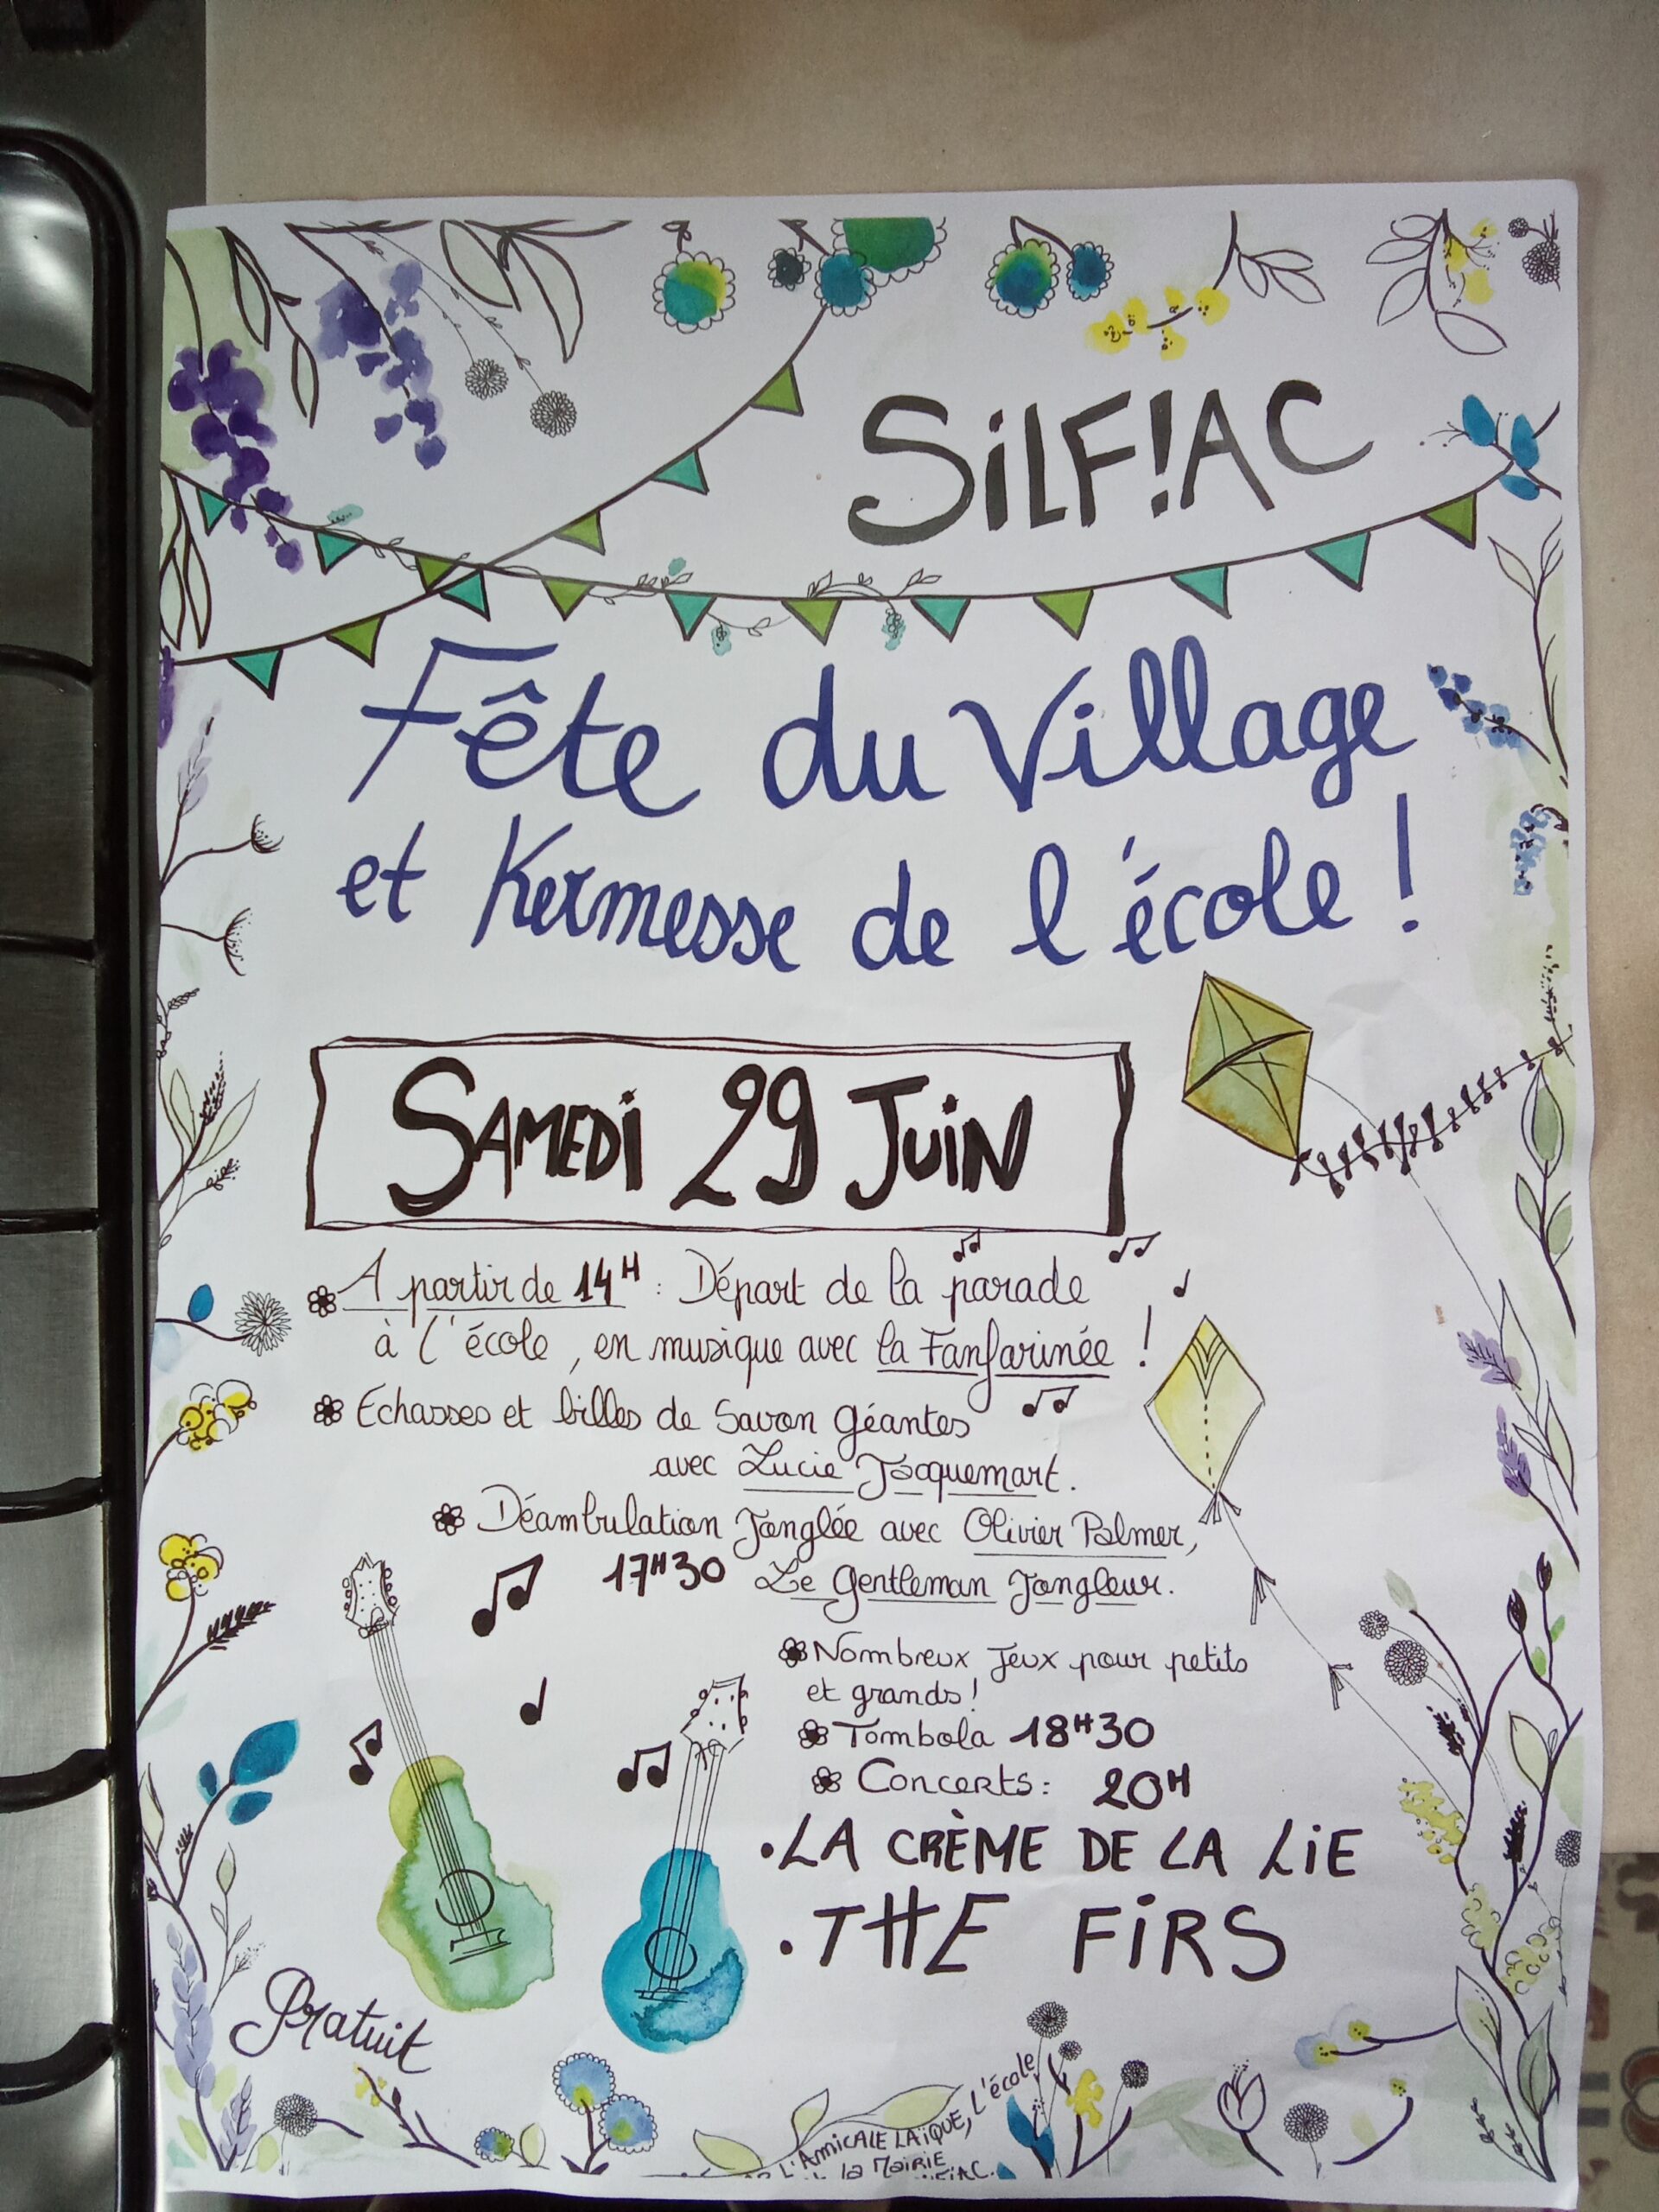 SiLF!AC
Fête du Village
et Kermesse de l'école !
SAMEDi 29 JUiN
A partir de 14H : Départ de la parade
à l'école, en musique avec la Fanfarinée !
Echasses et billes de Savon Géantes
avec Lucie Jacquemart.
Déambulation Jonglée avec Olivier Palmer,
17H30 Le Gentleman Jongleur.
Nombreux Jeux pour petits
et grands !
Tombola 18H30
Concerts : 20H
• LA CRÈME DE LA LiE
• THE FiRS
Gratuit
L'AMiCALE LAïQUE, L'école
la MAiRiE